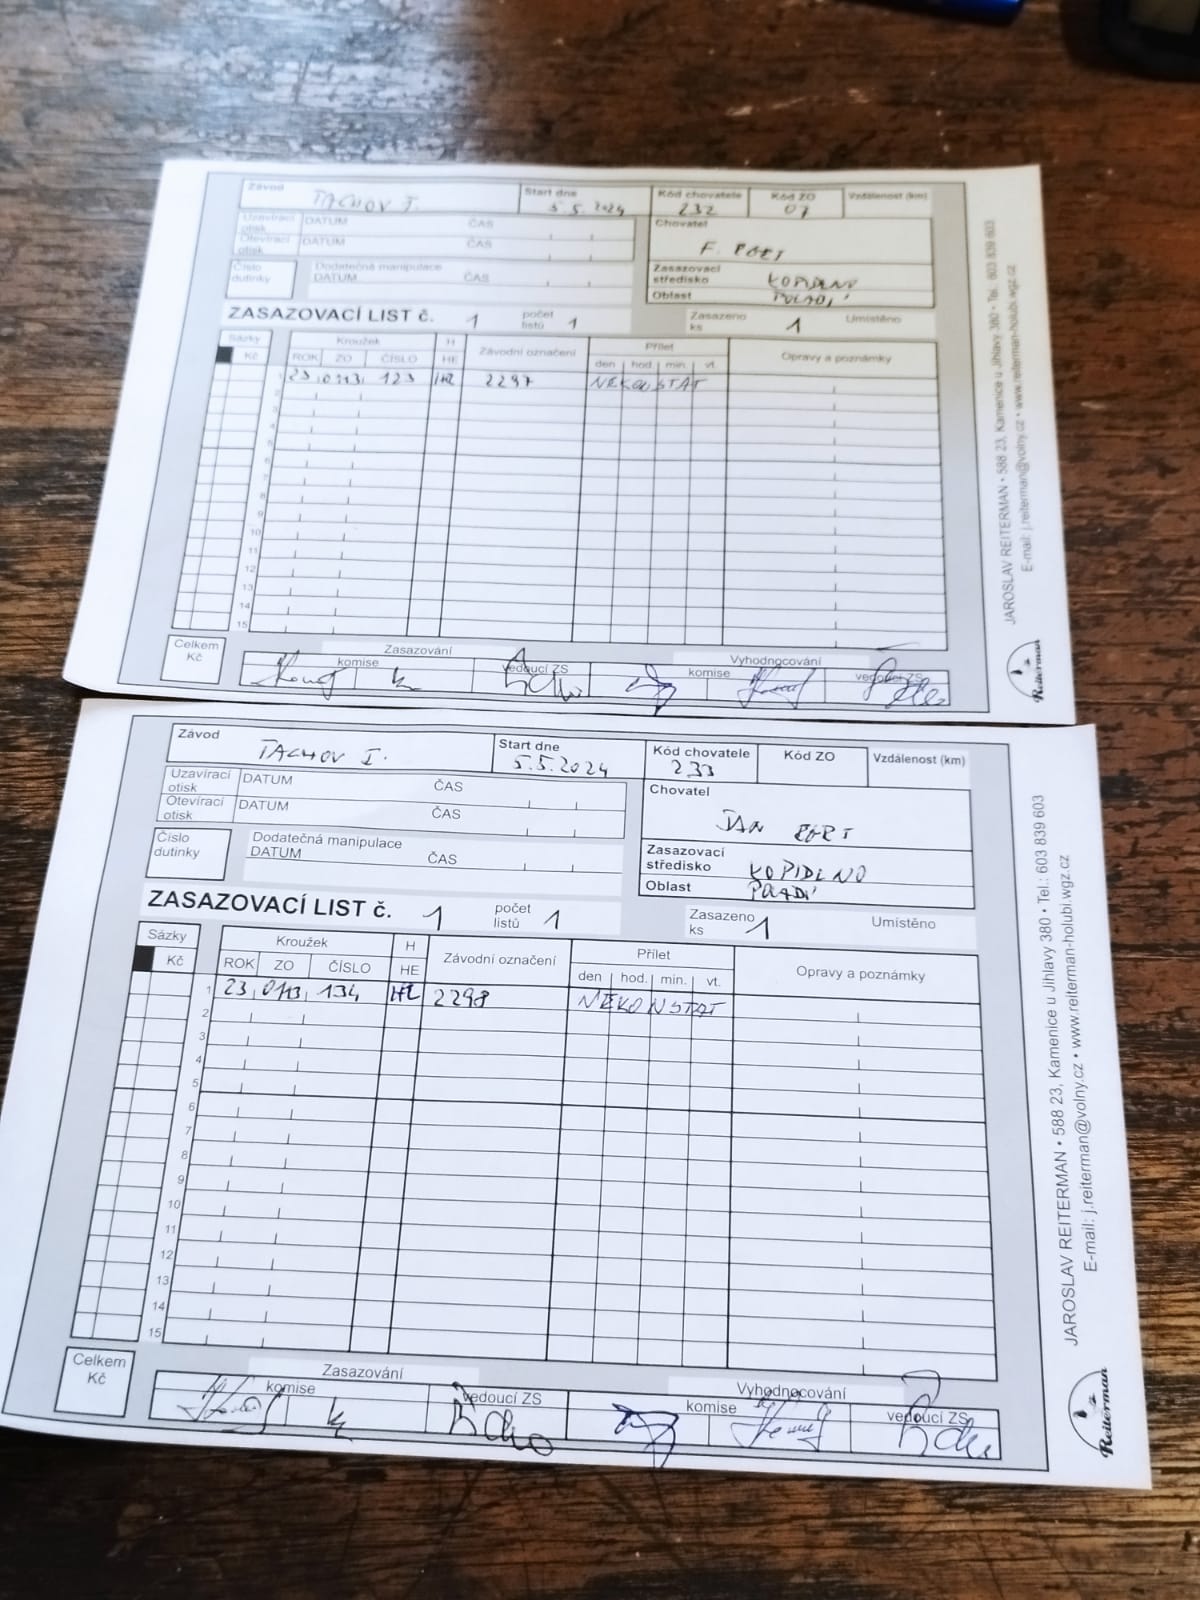 Závod TACHOV I. Start dne 5.5.2024 Kód chovatele 232 Kód ZO 07 Vzdálenost (km)
Uzavírací otisk DATUM ČAS
Otevírací otisk DATUM ČAS
Chovatel
F.
Číslo dutinky Dodatečná manipulace DATUM ČAS
Zasazovací středisko KOPIDLNO
Oblast
ZASAZOVACÍ LIST č. 1 počet listů 1 Zasazeno ks 1 Umístěno
Sázky Kroužek H Závodní označení Přílet Opravy a poznámky
Kč ROK ZO ČÍSLO HE den hod. min. vt.
1 23 0113 123 HE 2297 NEKONSTAT
2
3
4
5
6
7
8
9
10
11
12
13
14
15
Celkem Kč Zasazování Vyhodnocování
komise vedoucí ZS komise vedoucí ZS
JAROSLAV REITERMAN • 588 23, Kamenice u Jihlavy 380 • Tel.: 603 839 603
E-mail: j.reiterman@volny.cz • www.reiterman-holubi.wgz.cz
Reiterman
Závod TACHOV I. Start dne 5.5.2024 Kód chovatele 233 Kód ZO Vzdálenost (km)
Uzavírací otisk DATUM ČAS
Otevírací otisk DATUM ČAS
Chovatel
JAN
Číslo dutinky Dodatečná manipulace DATUM ČAS
Zasazovací středisko KOPIDLNO
Oblast
ZASAZOVACÍ LIST č. 1 počet listů 1 Zasazeno ks 1 Umístěno
Sázky Kroužek H Závodní označení Přílet Opravy a poznámky
Kč ROK ZO ČÍSLO HE den hod. min. vt.
1 23 0113 134 HE 2298 NEKONSTAT
2
3
4
5
6
7
8
9
10
11
12
13
14
15
Celkem Kč Zasazování Vyhodnocování
komise vedoucí ZS komise vedoucí ZS
JAROSLAV REITERMAN • 588 23, Kamenice u Jihlavy 380 • Tel.: 603 839 603
E-mail: j.reiterman@volny.cz • www.reiterman-holubi.wgz.cz
Reiterman